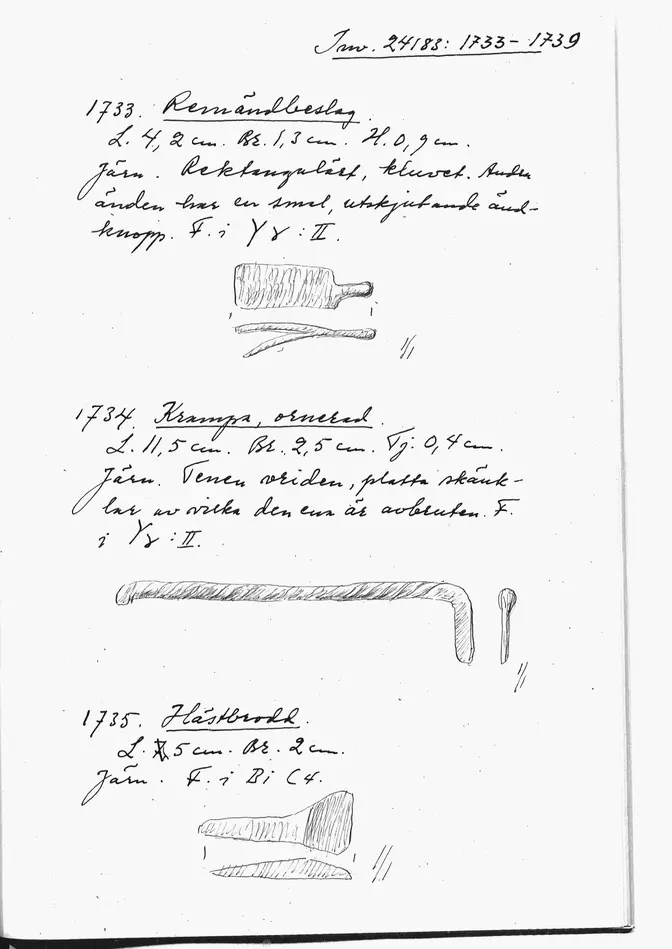 Inv. 24183: 1733-1739
1733. Remändbeslag.
L. 4,2 cm. Br. 1,3 cm. H. 0,9 cm.
Järn. Rektangulärt, kluvet. Andra
änden har en smal, utskjutande änd-
knopp. F. i Yγ : II.
1/1
1734. Krampa, ornerad.
L. 11,5 cm. Br. 2,5 cm. Tj. 0,4 cm.
Järn. Tenen vriden, platta skänk-
lar av vilka den ena är avbruten. F.
i Yγ : II.
1/1
1735. Hästbrodd.
L. 5 cm. Br. 2 cm.
Järn. F. i Bi C4.
1/1